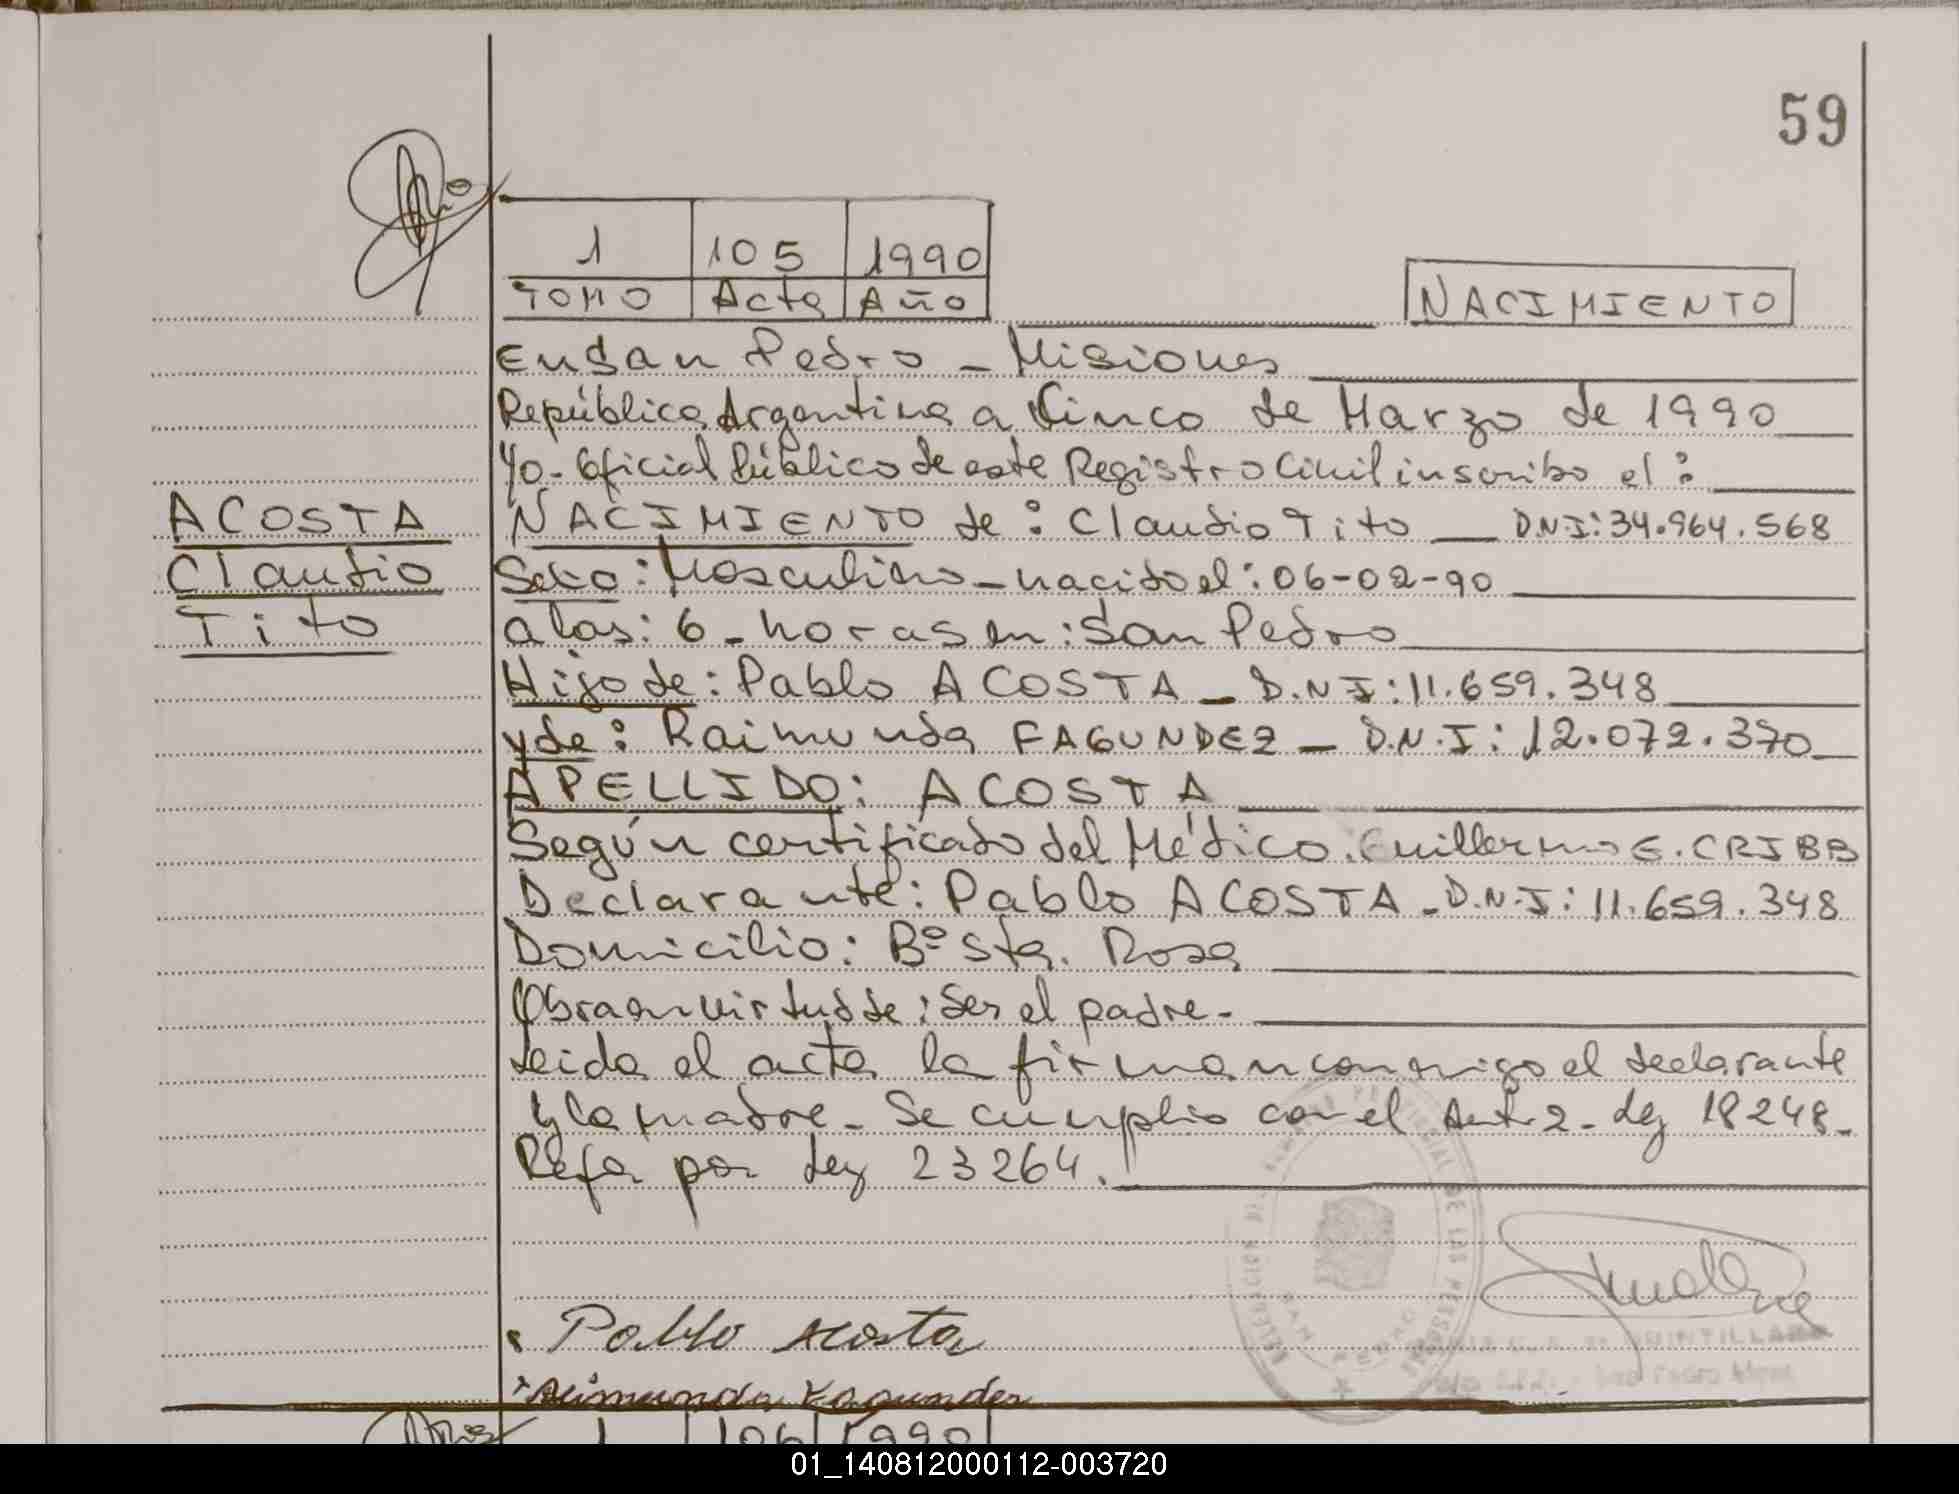 59
1 105 1990
TOMO Acta Año
NACIMIENTO
En San Pedro - Misiones
República Argentina a Cinco de Marzo de 1990
Yo. Oficial Público de este Registro Civil inscribo el:
ACOSTA
Claudio
Tito
NACIMIENTO de: Claudio Tito D.N.I: 34.964.568
Sexo: Masculino - nacido el: 06-02-90
a las: 6 - horas en: San Pedro
Hijo de: Pablo ACOSTA - D.N.I: 11.659.348
y de: Raimunda FAGUNDEZ - D.N.I: 12.072.370
APELLIDO: ACOSTA
Según certificado del Médico. Guillermo E. CRIBB
Declarante: Pablo ACOSTA - D.N.I: 11.659.348
Domicilio: Bº Sta. Rosa
Obra en virtud de: Ser el padre.
Leida el acta la firman conmigo el declarante
y la madre - Se cumplio con el Art. 2 - Ley 18248 -
Refa por Ley 23264.
Pablo Acosta
Raimunda Fagundez
1 106 1990
01_140812000112-003720